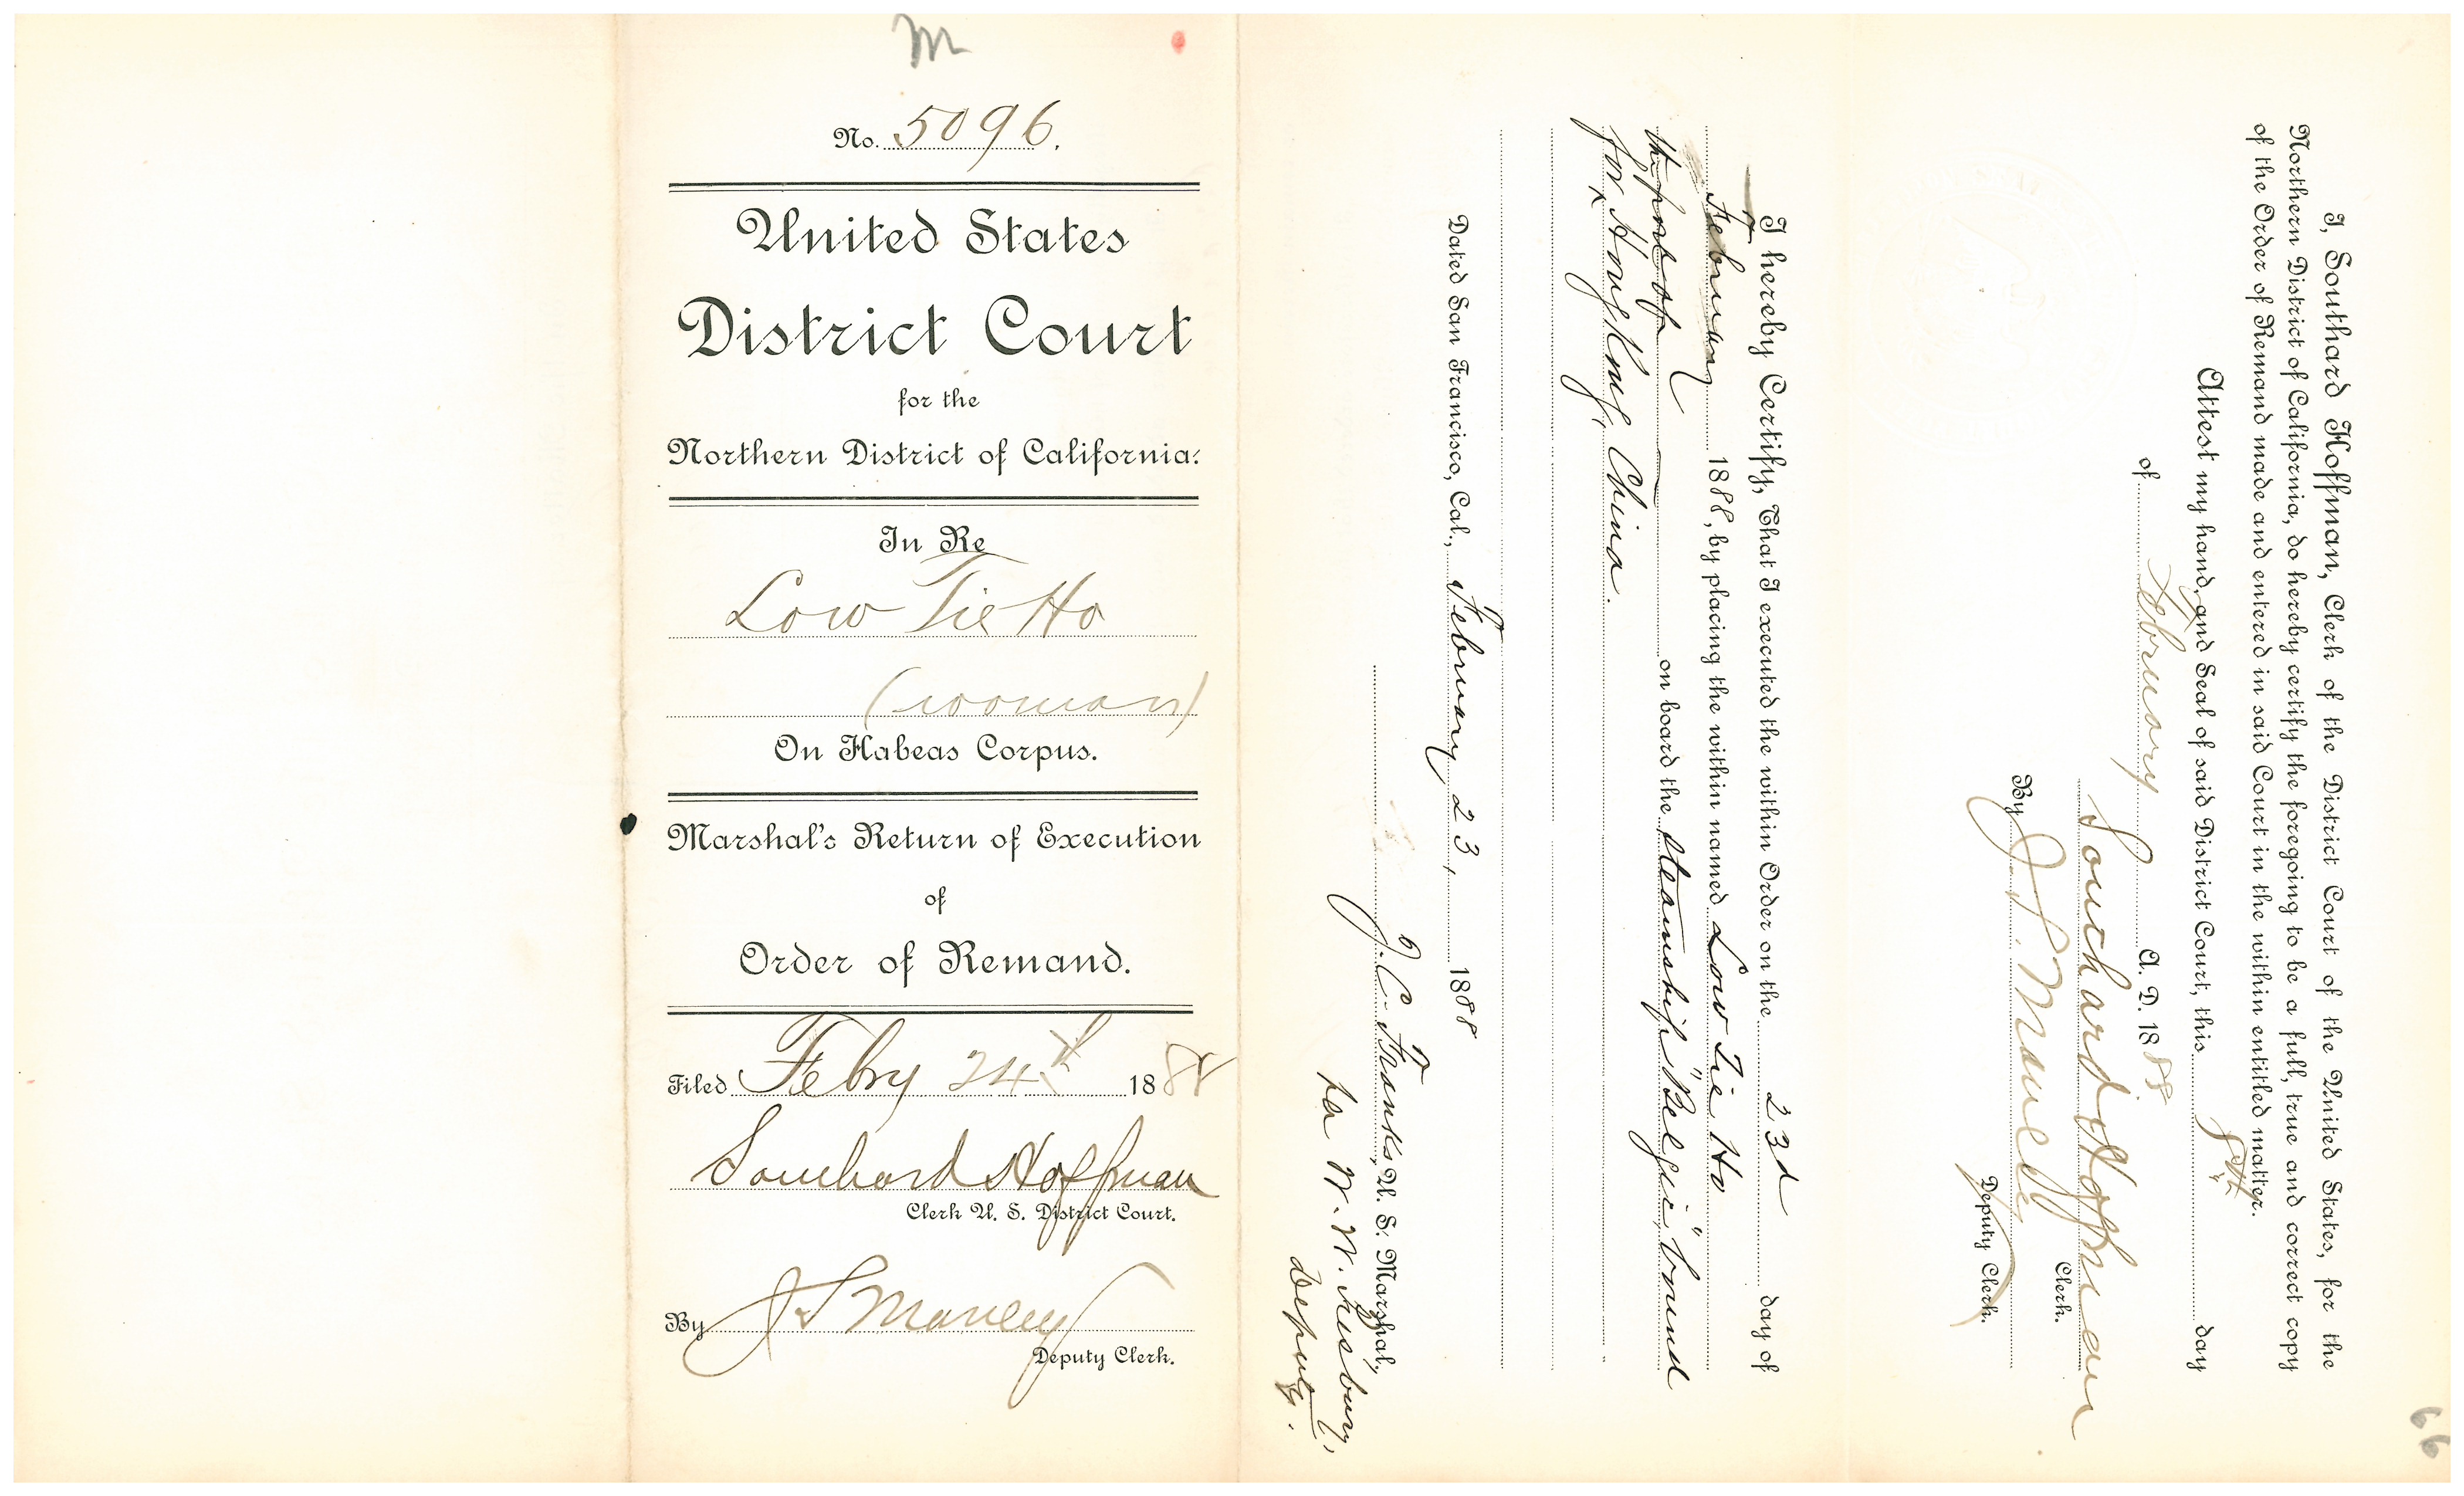 M
No. 5096.
United States
District Court
for the
Northern District of California.
In Re
Low Tie Ho
(woman)
On Habeas Corpus.
Marshal's Return of Execution
of
Order of Remand.
Filed Feby 24th 1888
Southard Hoffman
Clerk U. S. District Court.
By J S Manley
Deputy Clerk.
I hereby Certify, That I executed the within Order on the 23d day of
February 1888, by placing the within named Low Tie Ho
on board the steamship "Belgic," bound
for the port of Hong Kong, China.
Dated San Francisco, Cal., February 23, 1888
J. C. Franks, U. S. Marshal,
per W. W.
Deputy.
I, Southard Hoffman, Clerk of the District Court of the United States, for the
Northern District of California, do hereby certify the foregoing to be a full, true and correct copy
of the Order of Remand made and entered in said Court in the within entitled matter.
Attest my hand, and Seal of said District Court, this 8th day
of February A. D. 1888
Southard Hoffman
Clerk.
By J. S. Manley
Deputy Clerk.
66